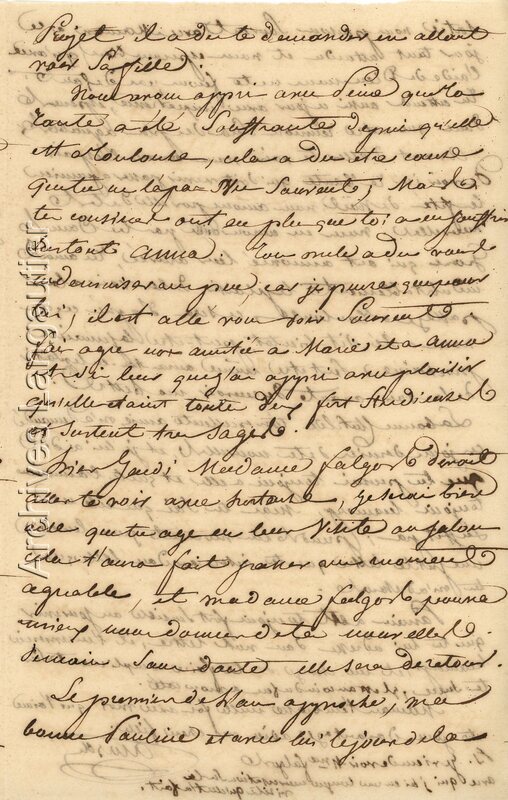 Projet il a du te demander en allant
voir Sa fille.
Nous avons appri avec peine que ta
tante a été Souffrante depui qu'elle
est a toulouse, cela a du etre cause
que tu ne l'a pas vue Souvent, Mais
te cousines ont eu plus que toi a en Souffrir
Surtout anna. ton oncle a du vous
endommiser un peu, car je pense que pour
il est allé vous voir Souvent
fai agré nos amitié a Marie et a anna
et di leur que j'ai appri avec plaisir
qu'elle etaint toute deux fort Studieuses
et surtout tres Sages.
hier Jeudi Madame falgos devait
aller te voir avec hortense, je serai bien
aise que tu age eu leur Visite au Salon
cela t'aura fait passer un moment
agréable, et madame falgos pourra
mieux nous donner de te nouvelles.
demain Sans doute elle sera de retour.
Le premier de l'an approche, ma
bonne Pauline et avec lui le jour de la
Archives Langautier